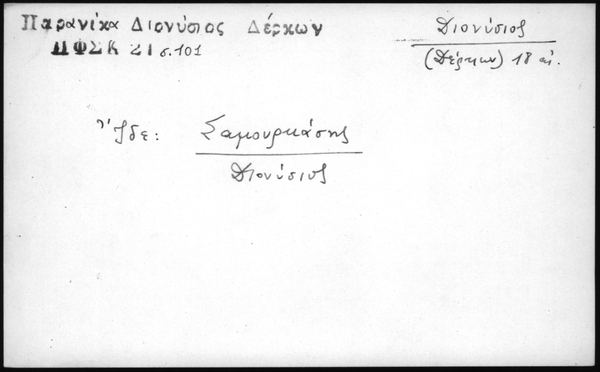 Παρανίκα Διονύσιος Δέρκων
ΠΦΣΚ 21 σ.101
Διονύσιος
(Δέρκων) 18 αι.
Ἴδε: Σαμουρκάσης
Διονύσιος